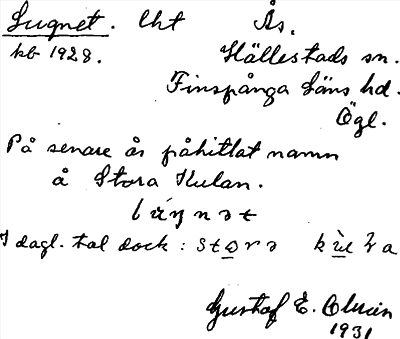 Lugnet. lht Ås.
kb 1928. Hällestads sn.
Finspånga läns hd.
Ögl.
På senare år påhittat namn
å Stora Kulan.
I dagl. tal dock:
Gustaf E.
1931